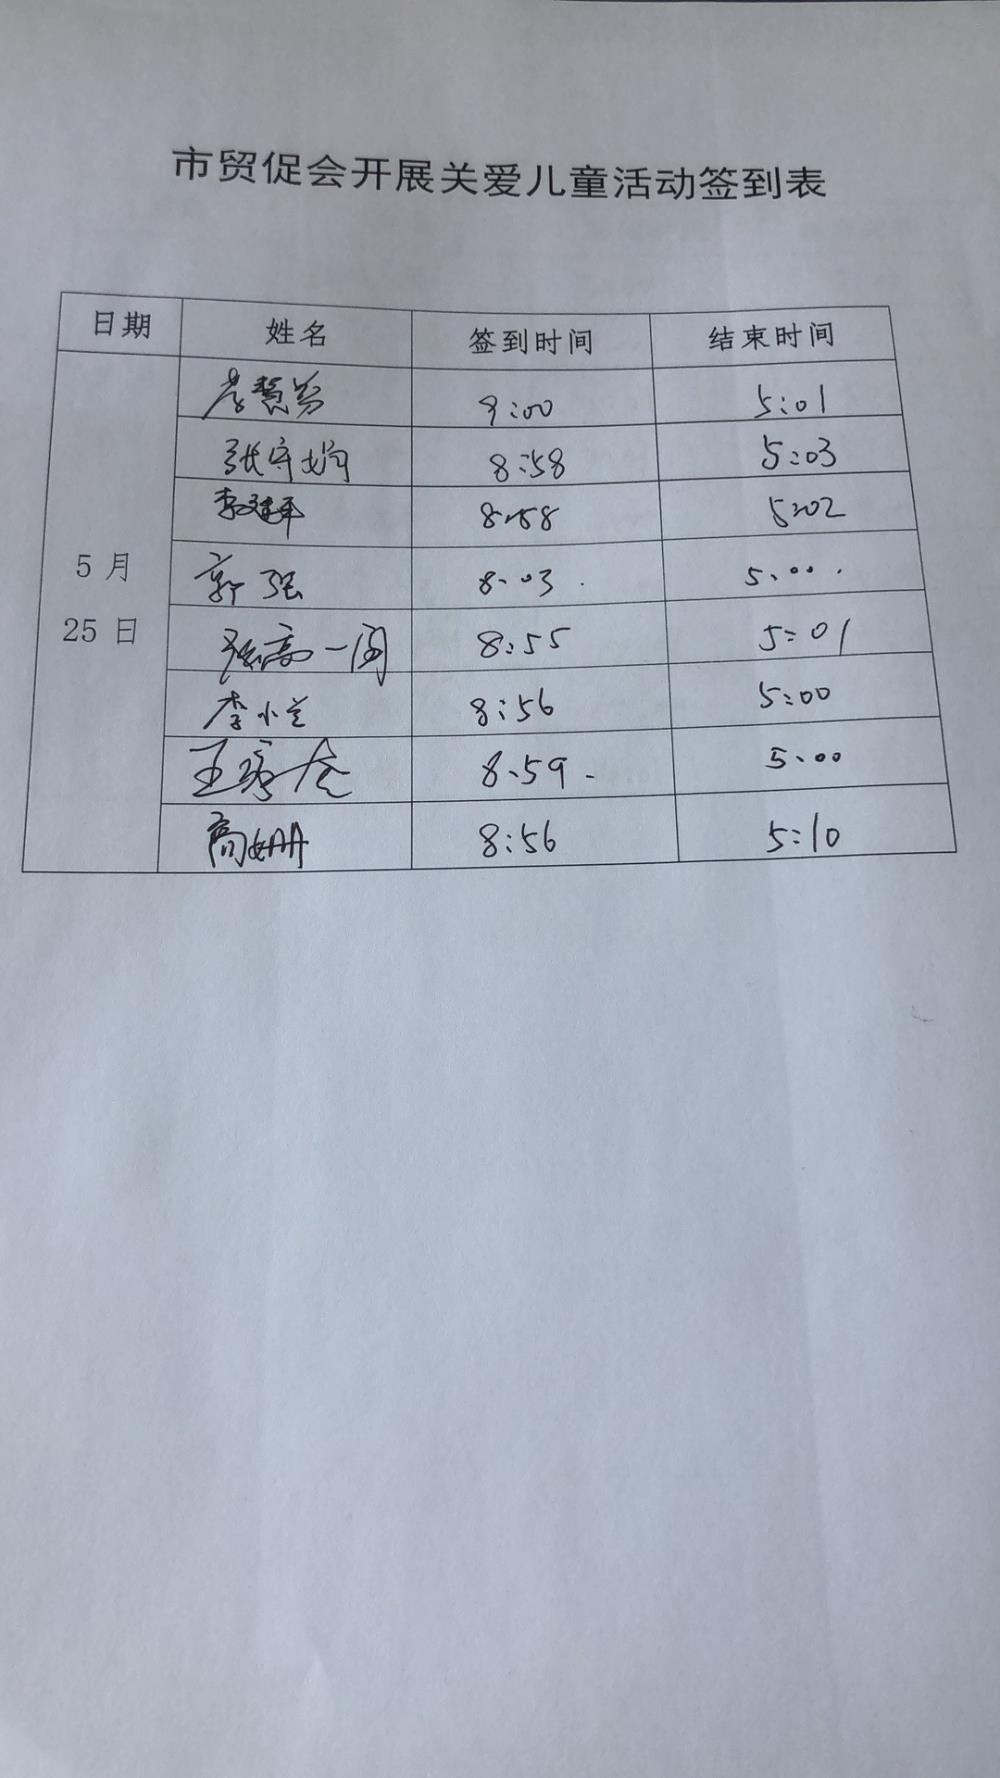 市贸促会开展关爱儿童活动签到表
日期 姓名 签到时间 结束时间
5月
25日
9:00 5:01
8:58 5:03
李建平 8:58 5:02
郭强 8:03 5:00
张高一闻 8:55 5:01
李小兰 8:56 5:00
王 8:59 5:00
高姗 8:56 5:10